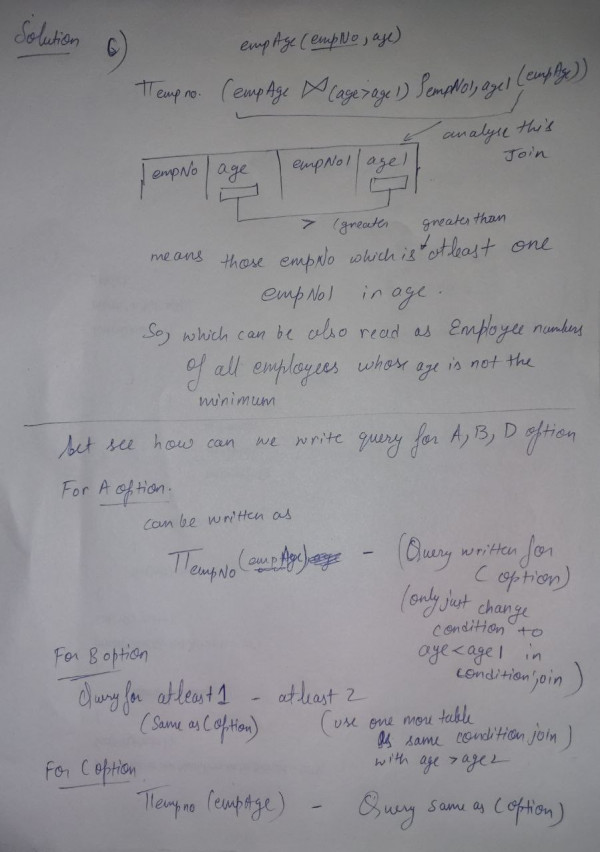 Solution 6)
empAge(empNo, age)
Π empno. (empAge ⋈ (age>age1) ρ empNo1, age1 (empAge))
analyse this
Join
empNo | age | empNo1 | age1
> (greater greater than
means those empNo which is atleast one
empNo1 in age.
So, which can be also read as Employee numbers
of all employees whose age is not the
minimum
let see how can we write query for A, B, D option
For A option.
can be written as
Π empNo (empAge) - (Query written for
C option)
(only just change
condition to
age<age1 in
condition join)
For B option
Query for atleast 1 - atleast 2
(Same as C option) (use one more table
same condition join)
with age > age2
For C option
Π empno (empAge) - Query same as C option)